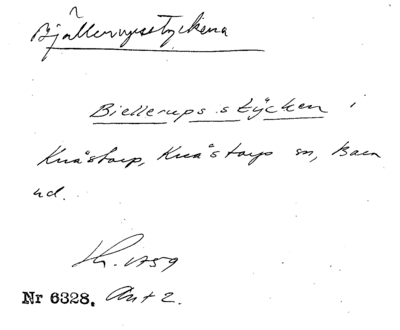 Bjällerupsstyckena
Biellerups stÿcken i
Knästorp, Knästorps sn, Bara
hd.
Lh. 1759
Nr 6328. Akt 2.